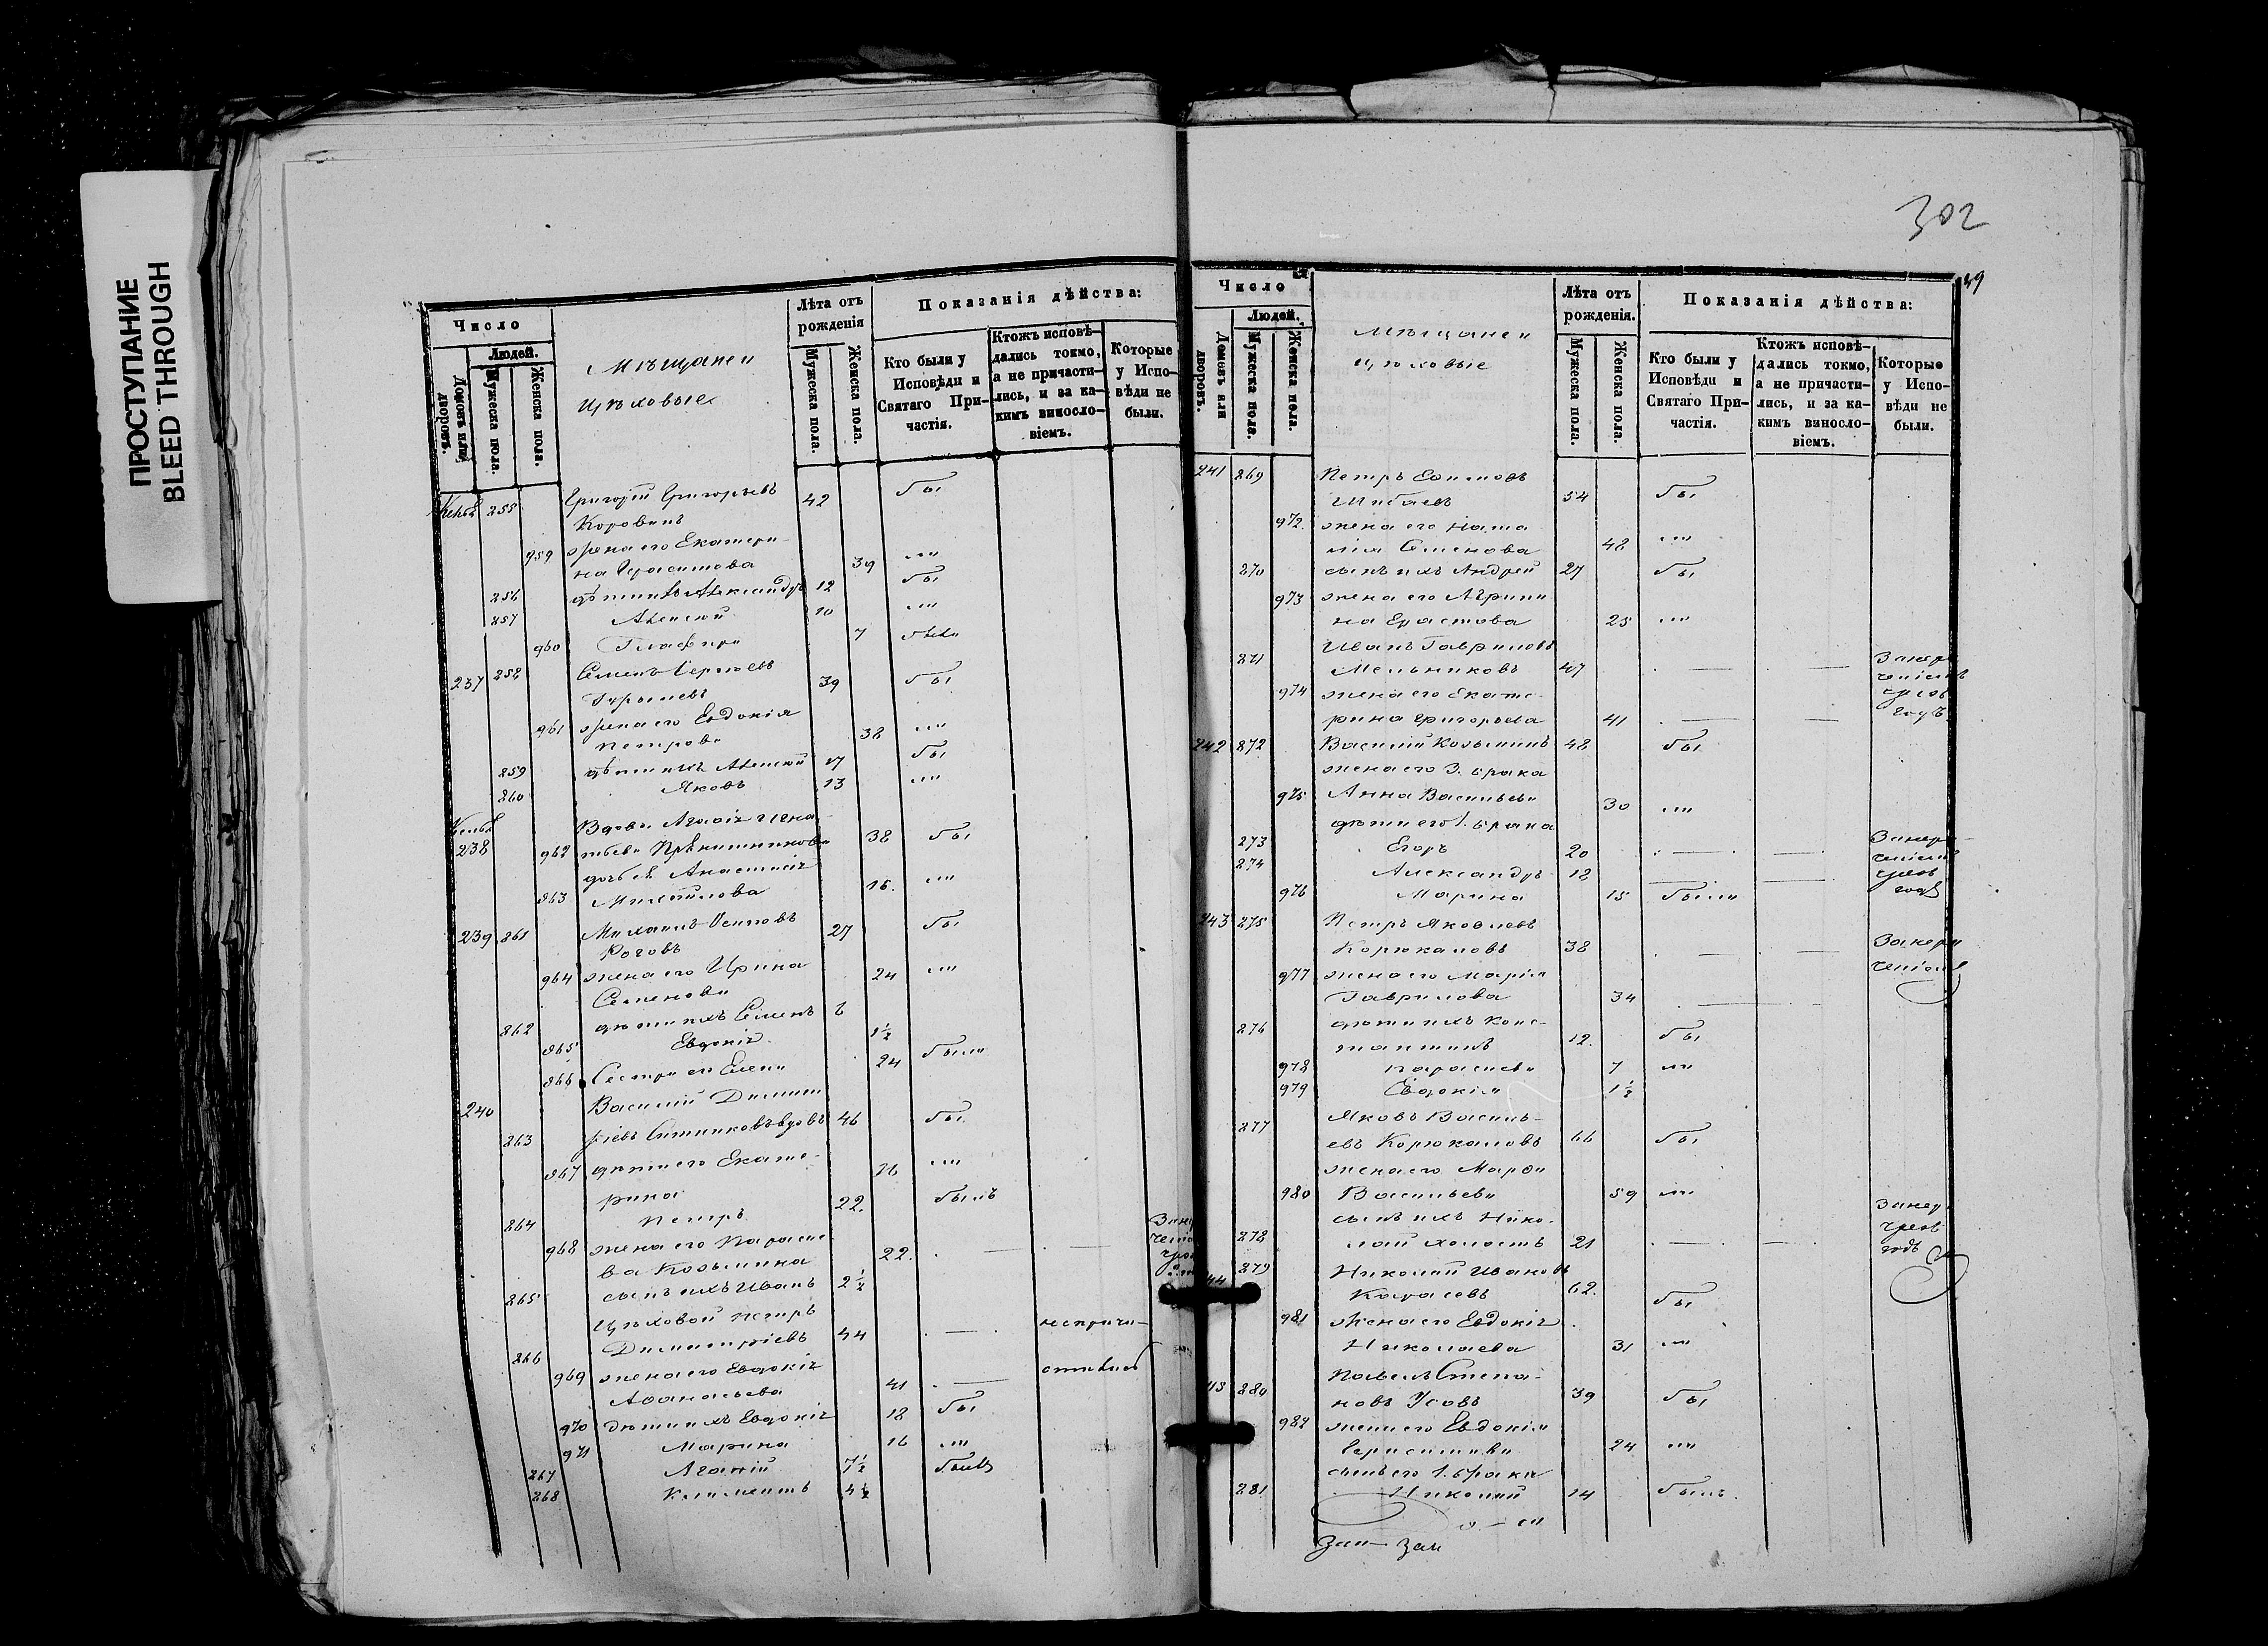 ПРОСТУПАНИЕ
BLEED THROUGH
Число
Людей.
Домовъ или дворовъ.
Мужеска пола.
Женска пола.
Мѣщане и
Цѣховые
Лѣта отъ рожденія
Мужеска пола.
Женска пола.
Показанія дѣйства:
Кто были у Исповѣди и Святаго Причастія.
Ктожъ исповѣдались токмо, а не причастились, и за какимъ винословіемъ.
Которые у Исповѣди не были.
255 Григорій Григорьевъ 42 бы
Коровинъ
959 жена его Екатери-
на Герасимова 39 "
256 дѣти ихъ Александръ 12 бы
257 Алексей 10 "
960 Глафира 7 была
237 258 Семенъ Сергѣевъ 39 бы
961 жена его Евдокія
Петрова 38 "
259 дѣти ихъ Алексей 17 бы
260 Яковъ 13 "
238 Вдова Агафія Игна-
962 тьева 38 бы
дочь ея Анастасія
963 Михайлова 16. "
239 261 Михаилъ Осиповъ 27 бы
Роговъ
964 жена его Ирина 24 "
Семенова
262 дѣти ихъ Семенъ
965 Евдокія 1½
966 Сестра его Елена 24 была
240 Василій Димит
263 ріевъ Ситниковъ вдовъ 46 бы
967 дѣти его Екате-
рина 26 "
264 Петръ 22. былъ
968 жена его Параске
ва Козьмина 22.
265 сынъ ихъ Иванъ 2½
Цѣховой Петръ
266 Димитріевъ 44 не причи-
969 жена его Евдокія стились
Афанасьева 41
970 дѣти ихъ Евдокія 18 бы
971 Марина 16 "
267 7½ былъ
268 Климентъ 4½
302
59
Число
Людей.
Домовъ или дворовъ.
Мужеска пола.
Женска пола.
Мѣщане и
цѣховые
Лѣта отъ рожденія.
Мужеска пола.
Женска пола.
Показанія дѣйства:
Кто были у Исповѣди и Святаго Причастія.
Ктожъ исповѣдались токмо, а не причастились, и за какимъ винословіемъ.
Которые у Исповѣди не были.
241 269 Петръ Ефимовъ
Шибаевъ 54 бы
972. жена его Ната
лія Семенова 48 "
270 сынъ ихъ Андрей 27 бы
973 жена его Агрипи
на Ерастова 25 "
271 Иванъ Гавриловъ
Мельниковъ 47
974 жена его Екате-
рина Григорьева 41
242 272 Василій Козьминъ 48 бы
жена его 3. брака
975 Анна Васильева 30 "
дѣти его 1. брака
273 Егоръ 20
274 Александръ 18
976 Марина 15 была
243 275 Петръ Яковлевъ
Корюкаловъ 38
977 жена его Марія
Гаврилова 34
276 дѣти ихъ Конс-
тантинъ 12. бы
978 Параскева 7 "
979 Евдокія 1½
277 Яковъ Василь-
евъ Корюкаловъ 66 бы
жена его Марфа
980 Васильева 59 "
сынъ ихъ Нико-
278 лай холостъ 21
44 279 Николай Ивановъ
Карасевъ 62. бы
981 жена его Евдокія
Николаева 31 "
Павелъ Степа-
280 новъ Усовъ 39 бы
982 жена его Евдокія
Герасимова 24 "
сынъ его 1. брака
281 Николай 14 былъ.